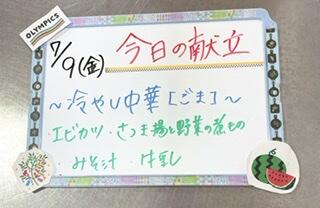 OLYMPICS
7/9(金) 今日の献立
～冷やし中華[ごま]～
・エビカツ ・さつま揚と野菜の煮もの
・みそ汁 ・牛乳